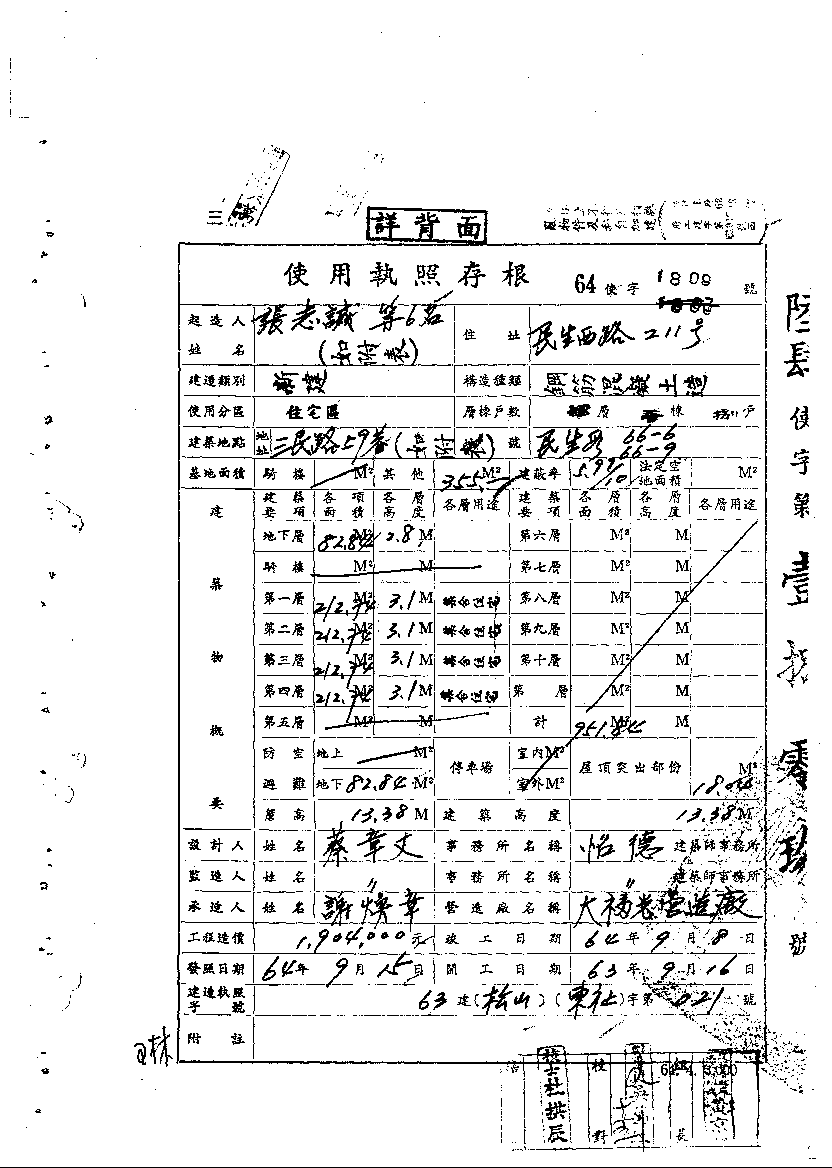 詳背面
使用執照存根 64使字 1809 號
起造人姓名 張志誠 等6名 (如附表) 住址 民生西路211号
建造類別 新建 構造種類 鋼筋混凝土造
使用分區 住宅區 層棟戶數 層 棟 戶
建築地點 地址 三民路59巷(如附表) 號 民生段 66-6 66-9
基地面積 騎樓 M² 其他 355. M² 建蔽率 5.99/10 法定空地面積 M²
建築物概要 建築要項 各項面積 各層高度 各層用途 建築要項 各層面積 各層高度 各層用途
地下層 82.84 M² 2.8 M 第六層 M² M
騎樓 M² M 第七層 M² M
第一層 212.74 M² 3.1 M 集合住宅 第八層 M² M
第二層 212.74 M² 3.1 M 集合住宅 第九層 M² M
第三層 212.74 M² 3.1 M 集合住宅 第十層 M² M
第四層 212.74 M² 3.1 M 集合住宅 第 層 M² M
第五層 M² M 計 951.84 M² M
防空避難 地上 M² 停車場 室內M² 屋頂突出部份 M²
地下 82.84 M² 室外M² 18.04
簷高 13.38 M 建築高度 13.38 M
設計人 姓名 蔡章文 事務所名稱 怡德 建築師事務所
監造人 姓名 〃 事務所名稱 〃 建築師事務所
承造人 姓名 謝煥章 營造廠名稱 大福老營造廠
工程造價 1,904,000元 竣工日期 64年9月8日
發照日期 64年9月15日 開工日期 63年9月16日
建造執照字號 63建(松山)(東社)字第021號
附註
陸肆使字第壹捌零玖號
技士杜拱辰
校對